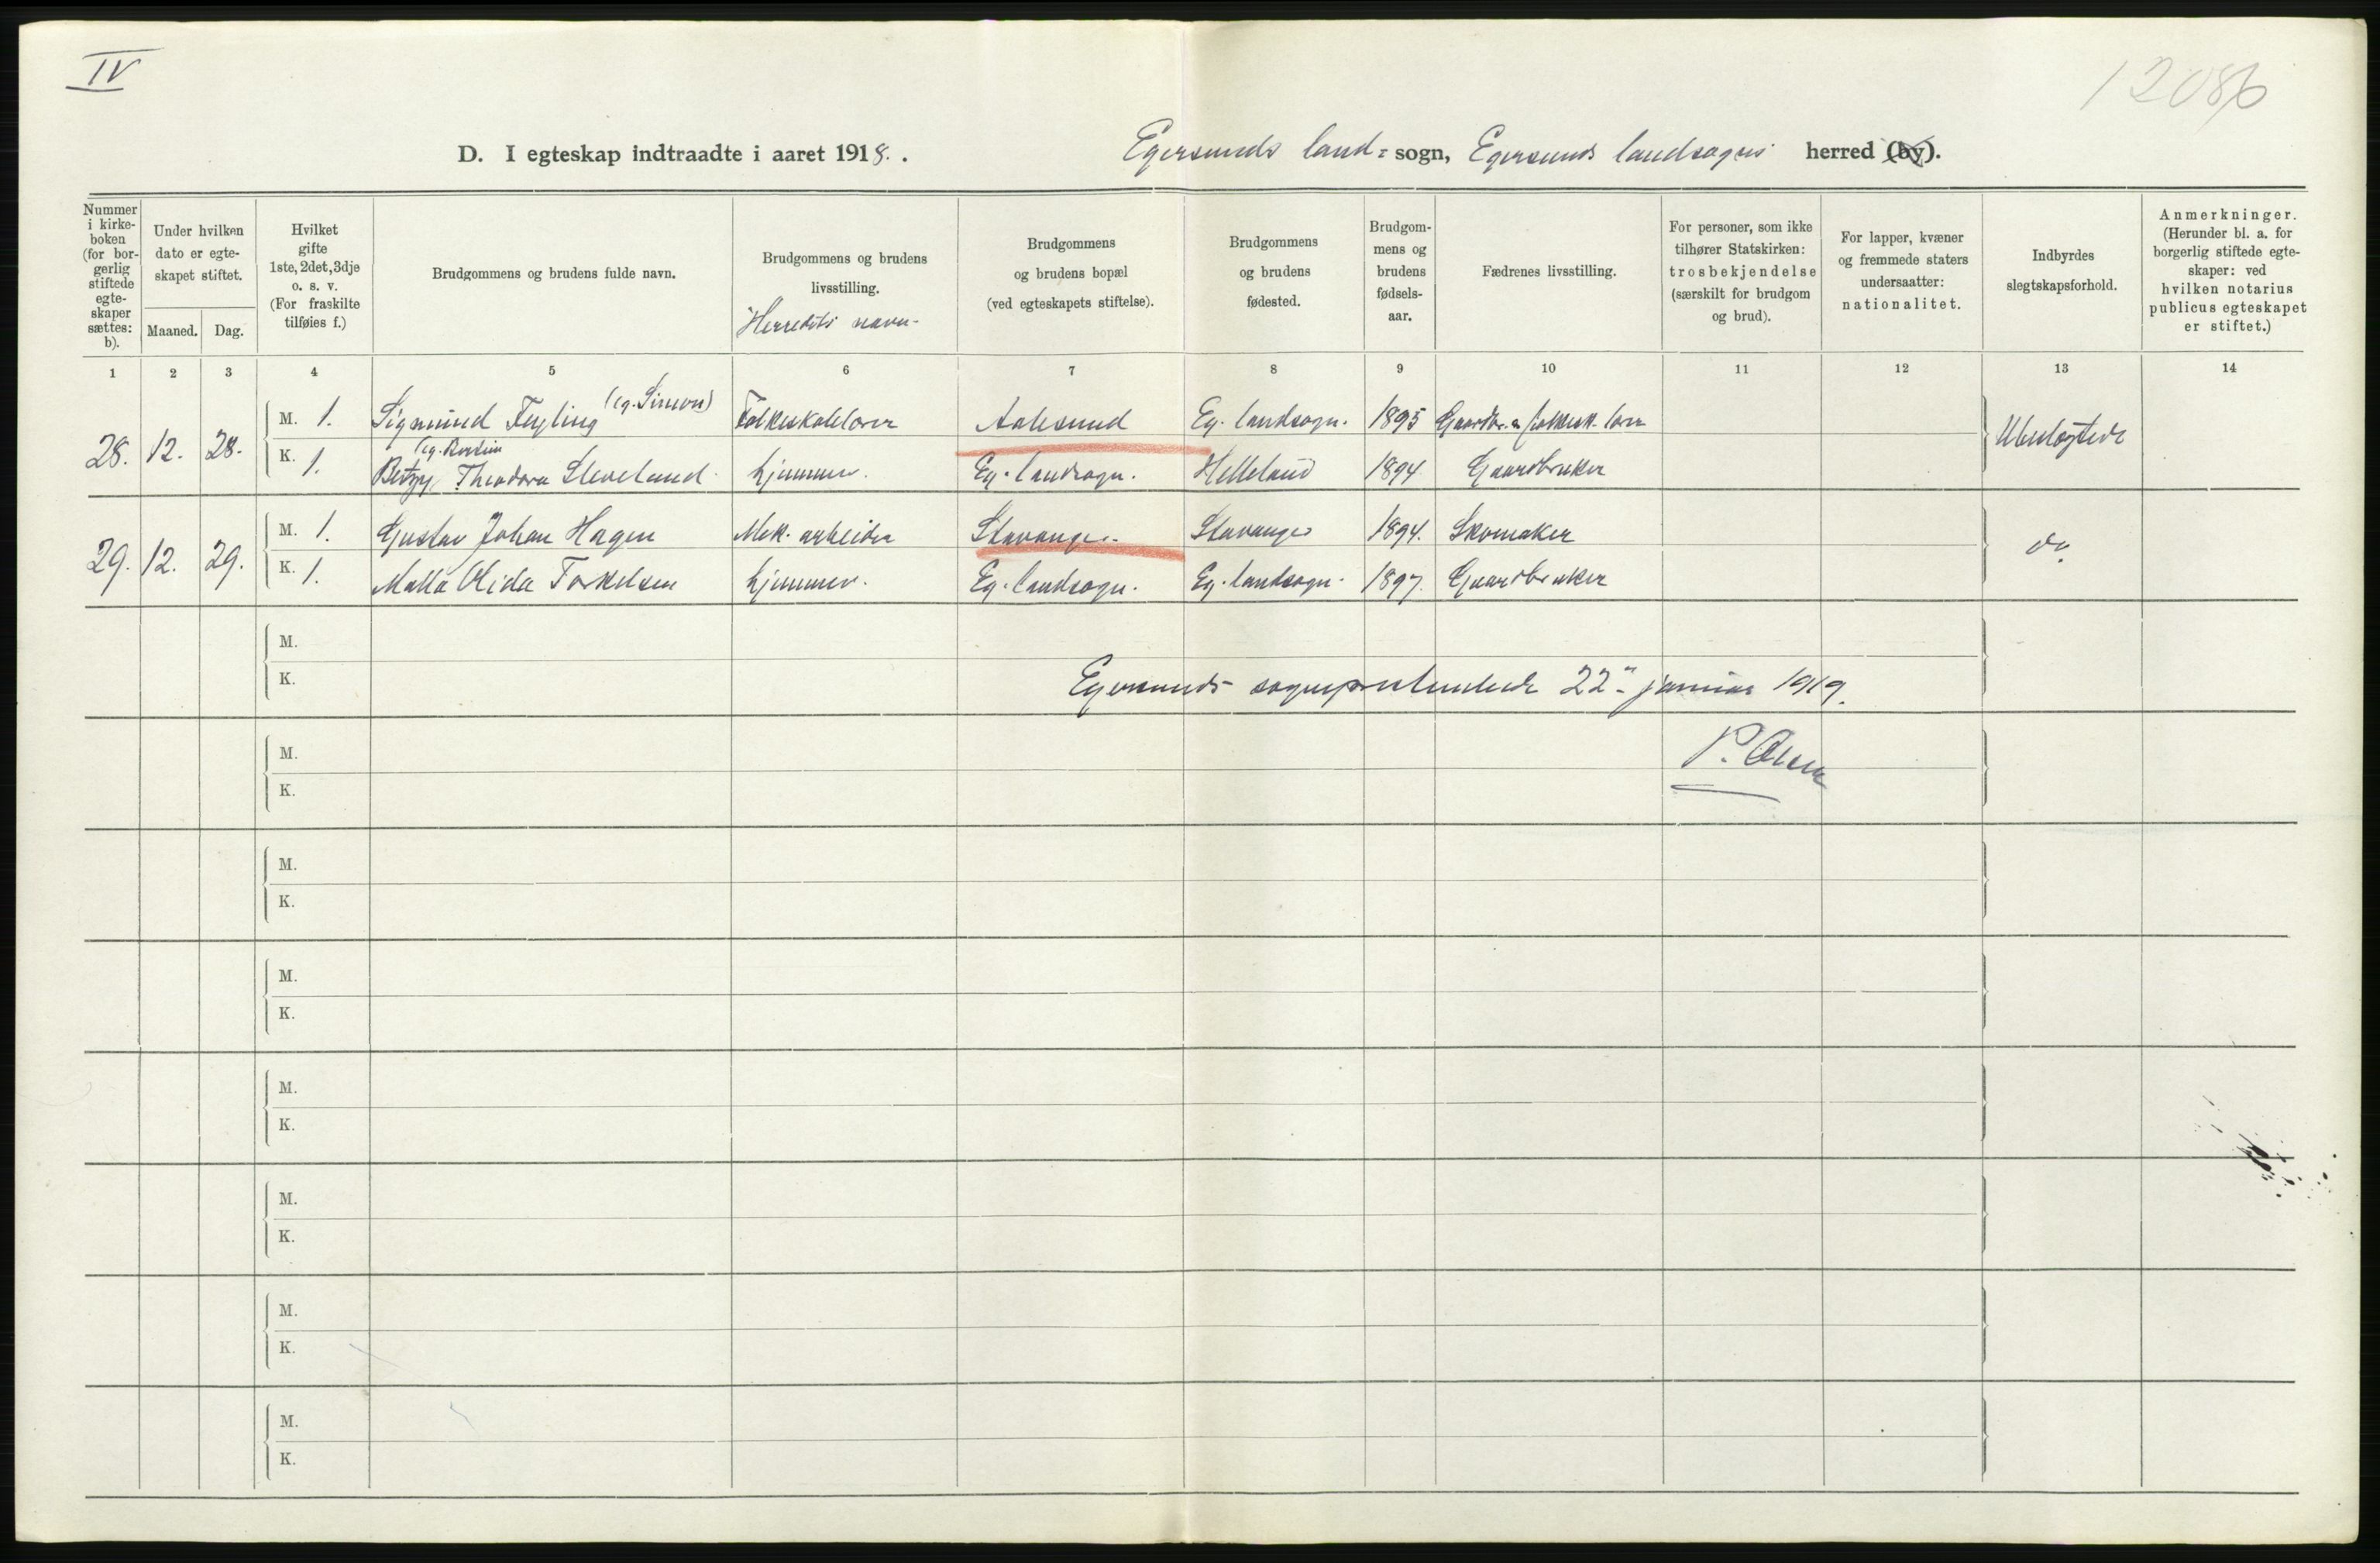 IV
12086
D. I egteskap indtraadte i aaret 1918. . Egersunds land= sogn, Egersunds landsogns herred (by).
Nummer i kirke-boken (for bor-gerlig stiftede egte-skaper sættes: b).
Under hvilken dato er egte-skapet stiftet.
Maaned. Dag.
Hvilket gifte 1ste, 2det, 3dje o. s. v. (For fraskilte tilføies f.)
Brudgommens og brudens fulde navn.
Brudgommens og brudens livsstilling.
Herredets navn-
Brudgommens og brudens bopæl (ved egteskapets stiftelse).
Brudgommens og brudens fødested.
Brudgom-mens og brudens fødsels-aar.
Fædrenes livsstilling.
For personer, som ikke tilhører Statskirken: trosbekjendelse (særskilt for brudgom og brud).
For lapper, kvæner og fremmede staters undersaatter: nationalitet.
Indbyrdes slegtskapsforhold.
Anmerkninger. (Herunder bl. a. for borgerlig stiftede egte-skaper: ved hvilken notarius publicus egteskapet er stiftet.)
1 2 3 4 5 6 7 8 9 10 11 12 13 14
28. 12. 28. M. 1. Sigmund Fugling (eg. Simon) Folkeskolelærer Aalesund Eg. landsogn. 1895 Gaardbr. & folkesk. lærer Ubeslegtede
K. 1. Betzy (eg. Berthine Theodora Sleveland. hjemmev. Eg. landsogn. Helleland 1894 Gaardbruker
29. 12. 29. M. 1. Gustav Johan Hagen Mek. arbeider Stavanger. Stavanger 1894. Skomaker do.
K. 1. Malla Olida Torkelsen hjemmev. Eg. landsogn. Eg. landsogn. 1897. Gaardbruker
M.
K.
Egersunds sogneprestembede 22. januar 1919.
M.
P. Olsen
K.
M.
K.
M.
K.
M.
K.
M.
K.
M.
K.
M.
K.